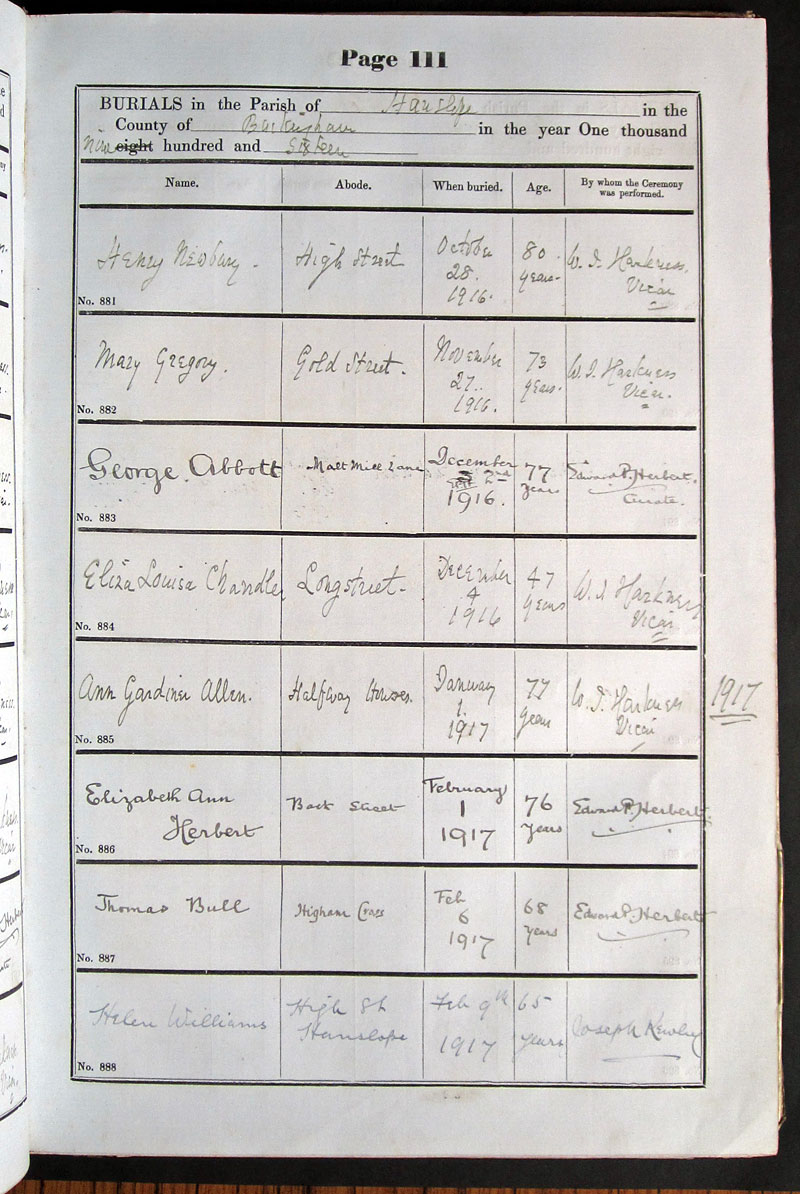 Page 111
BURIALS in the Parish of Hanslope in the
County of Buckingham in the year One thousand
Nine eight hundred and Sixteen
Name. Abode. When buried. Age. By whom the Ceremony was performed.
Henry Newbury. High Street October 28. 1916. 80 years. W. J. Harkness. Vicar
No. 881
Mary Gregory. Gold Street. November 27. 1916. 73 years. W. J. Harkness Vicar.
No. 882
George Abbott Malt Mill Lane December 2nd 1916. 77 years Edward P. Herbert. Curate.
No. 883
Eliza Louisa Chandler Longstreet. December 4 1916 47 years W. J. Harkness Vicar
No. 884
Ann Gardiner Allen. Halfway Houses. January 1. 1917 77 years W. J. Harkness Vicar
1917
No. 885
Elizabeth Ann Herbert Back Street February 1 1917 76 years Edward P. Herbert.
No. 886
Thomas Bull Higham Cross Feb 6 1917 68 years Edward P. Herbert
No. 887
Helen Williams High St Hanslope Feb 9th 1917 65 years Joseph Kewley
No. 888